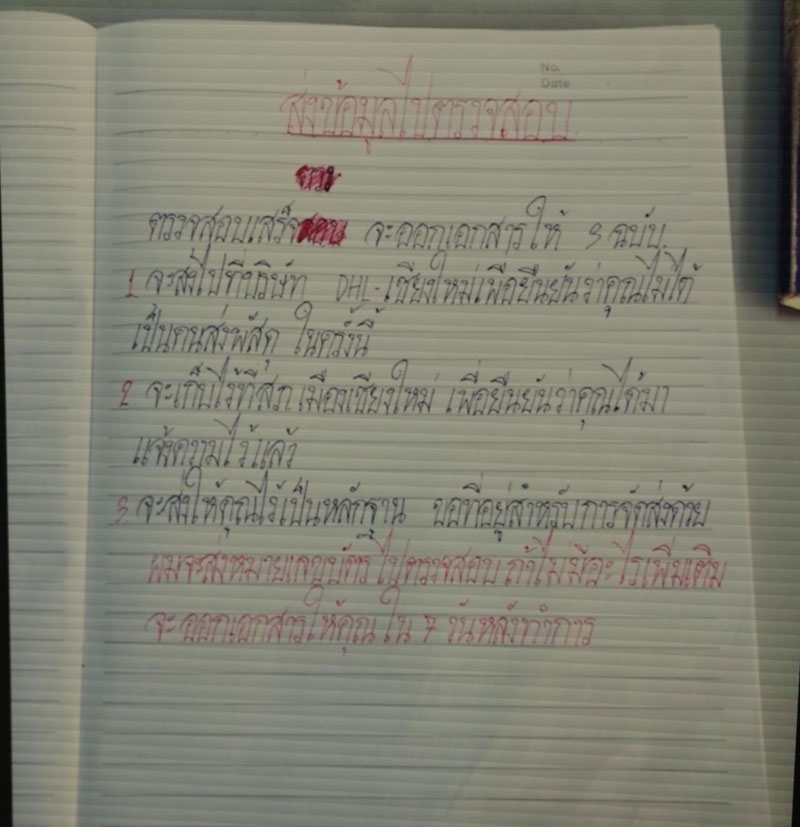 No.
Date
ส่งข้อมูลไปตรวจสอบ
ตรวจสอบเสร็จ จะออกเอกสารให้ 3 ฉบับ
1. จะส่งไปที่บริษัท DHL-เชียงใหม่เพื่อยืนยันว่าคุณไม่ได้
เป็นคนส่งพัสดุ ในครั้งนี้
2. จะเก็บไว้ที่สภ.เมืองเชียงใหม่ เพื่อยืนยันว่าคุณได้มา
แจ้งความไว้แล้ว
3. จะส่งให้คุณไว้เป็นหลักฐาน ขอที่อยู่สำหรับการจัดส่งด้วย
ผมจะส่งหมายเลขบัตรไปตรวจสอบ ถ้าไม่มีอะไรเพิ่มเติม
จะออกเอกสารให้คุณ ใน 7 วันหลังทำการ